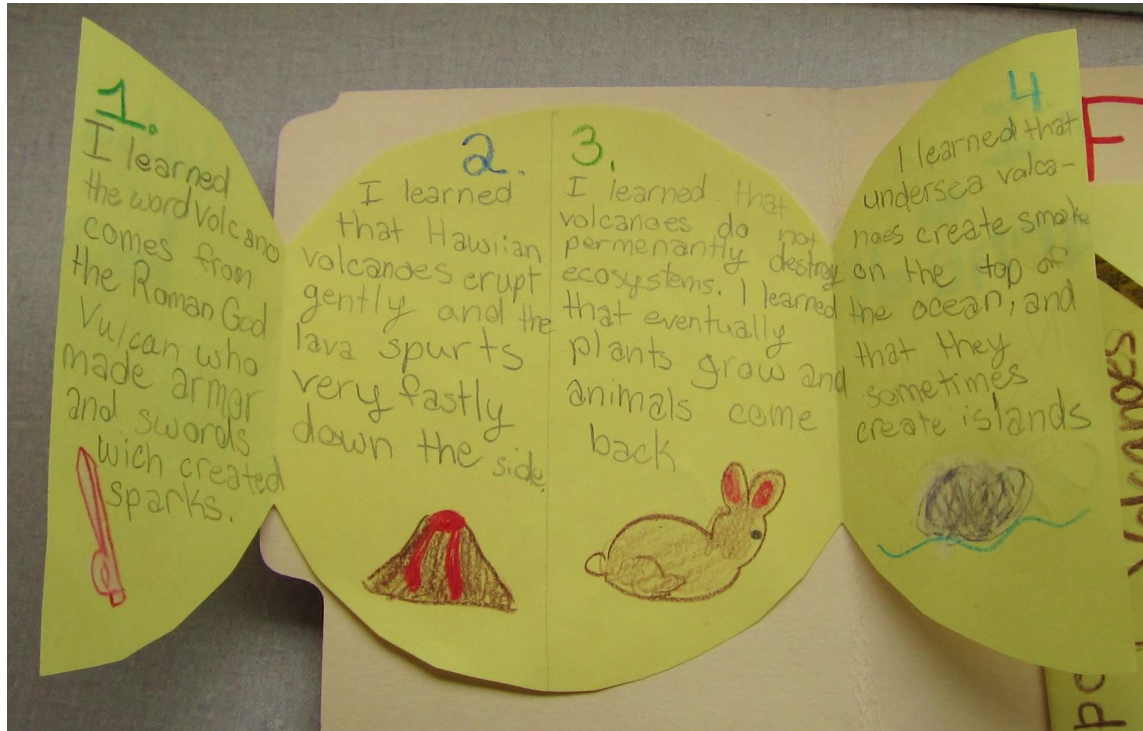 1.
I learned
the word volcano
comes from
the Roman God
Vulcan who
made armor
and swords
wich created
sparks.
2.
I learned
that Hawiian
volcanoes erupt
gently and the
lava spurts
very fastly
down the side.
3.
I learned that
volcanoes do not
permenantly destroy
ecosystems. I learned
that eventually
plants grow and
animals come
back
4.
I learned that
undersea valca-
noes create smoke
on the top of
the ocean, and
that they
sometimes
create islands
F
Volcanoes